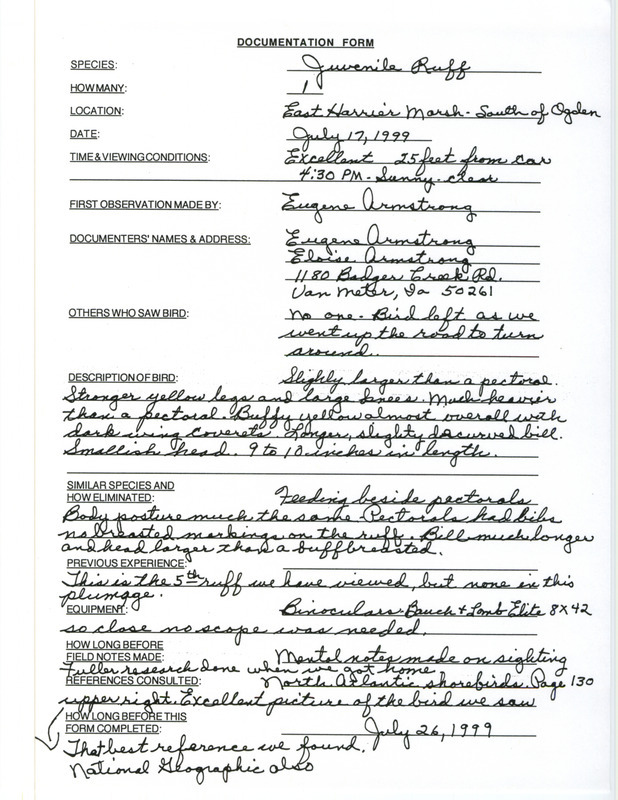 DOCUMENTATION FORM
SPECIES: Juvenile Ruff
HOW MANY: 1
LOCATION: East Harrier Marsh - South of Ogden
DATE: July 17, 1999
TIME & VIEWING CONDITIONS: Excellent 25 feet from car
4:30 PM - Sunny - clear
FIRST OBSERVATION MADE BY: Eugene Armstrong
DOCUMENTERS' NAMES & ADDRESS: Eugene Armstrong
Eloise Armstrong
1180 Badger Creek Rd.
Van Meter, Ia 50261
OTHERS WHO SAW BIRD: No one - Bird left as we
went up the road to turn
around.
DESCRIPTION OF BIRD: Slighly larger than a pectoral.
Stronger yellow legs and large knees. Much heavier
than a pectoral. Buffy yellow almost overall with
dark wing coverets. Longer, slighty decurved bill.
Smallish head. 9 to 10 inches in length.
SIMILAR SPECIES AND
HOW ELIMINATED: Feeding beside pectorals
Body posture much the same. Pectorals had bibs
no breasted markings on the ruff. Bill much longer
and head larger than a buffbreasted.
PREVIOUS EXPERIENCE:
This is the 5th ruff we have viewed, but none in this
plumage.
EQUIPMENT: Binoculars - Bauch + Lomb Elite 8X42
so close no scope was needed.
HOW LONG BEFORE
FIELD NOTES MADE: Mental notes made on sighting
Fuller research done when we got home
REFERENCES CONSULTED: North Atlantic shorebirds. Page 130
upper right. Excellent picture of the bird we saw
HOW LONG BEFORE THIS
FORM COMPLETED: July 26, 1999
That best reference we found.
National Geographic also